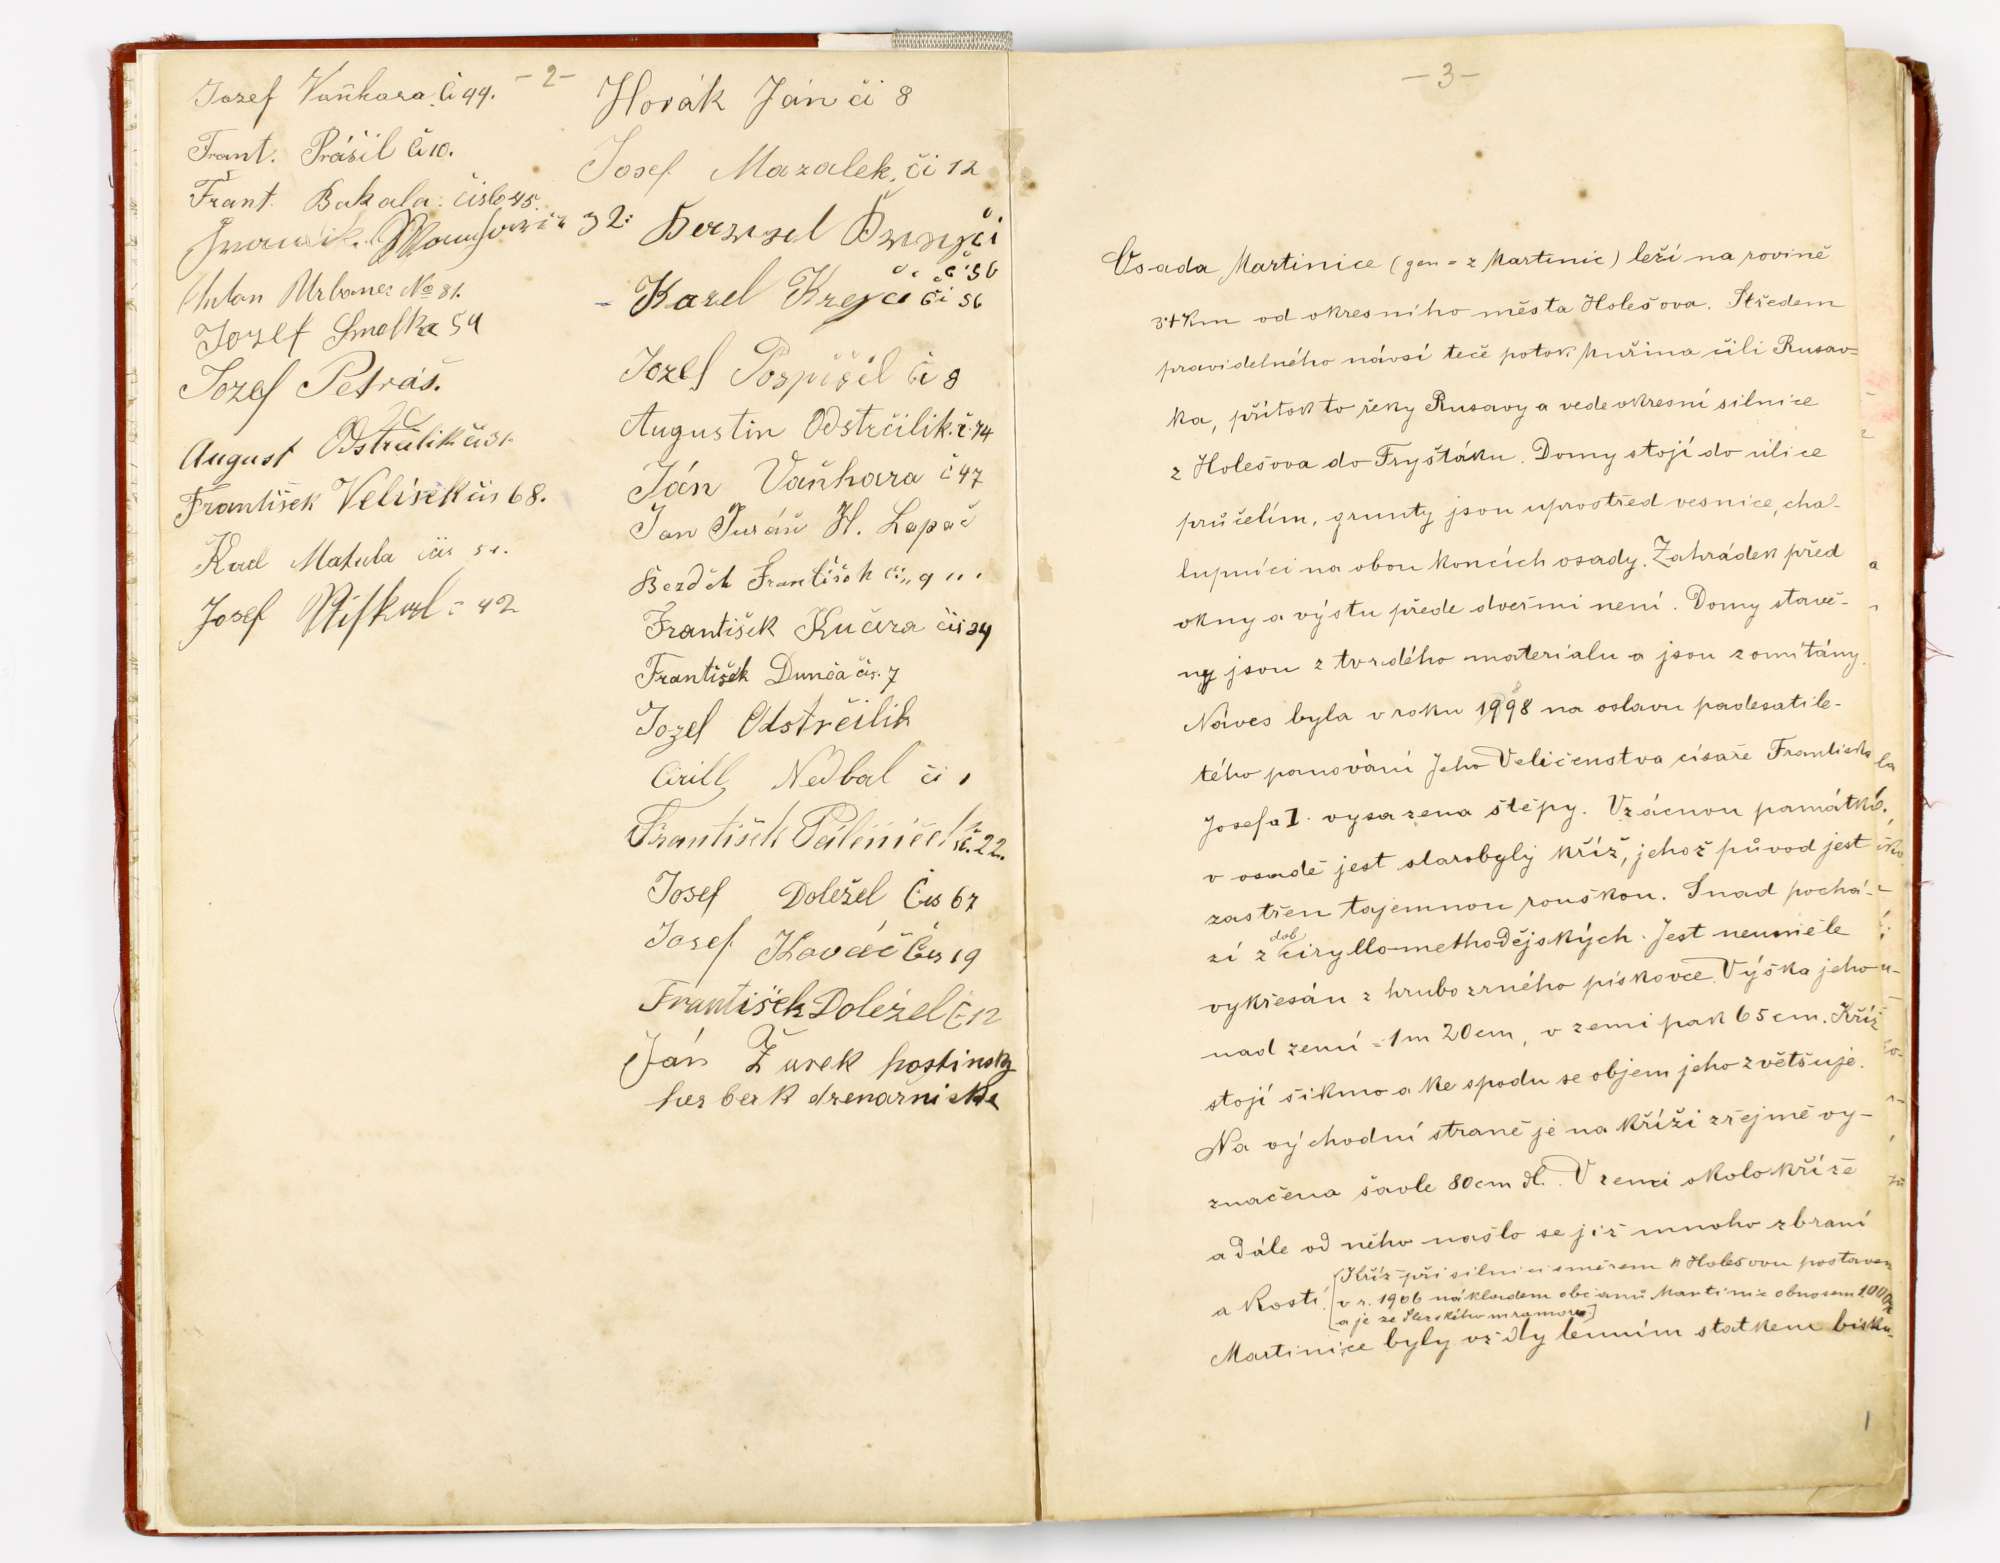 - 2 -
Josef Vaňhara či 99.
Frant. Prášil či 10.
Frant. Bakala. číslo 45.
32:
Anton Urbanec No 81.
Jozef Smolka 54
Jozef Petráš.
August Odstrčilik či 31
František Velísek čís 68.
Karl Matula čís
Josef 42
Horák Ján či 8
Josef Mazalek, či 12
či 56
Karel Krejči či 56
Jozef Pospíšil či 8
Augustin Odstrčilik. č. 74
Ján Vaňhara č 47
Jan Juráň H. Lapač
Bezděk František či „ 9 „
František Kučera čís 34
František Dunča čís. 7
Jozef Odstrčilik
Cirill Nedbal či 1
František Páleníček č. 22.
Josef Doležel Čís 67
Josef Kovář Čís 19
František Doležel č 12
Ján Žurek hostinský
- 3 -
Osada Martinice (gen = z Martinic) leží na rovině
3·4 km od okresního města Holešova. Středem
pravidelného návsí teče potok Mužina čili Rusav=
ka, přítok to řeky Rusavy a vede okresní silnice
z Holešova do Fryštáku. Domy stojí do úlice
průčelím, grunty jsou uprostřed vesnice, cha-
lupníci na obou koncích osady. Zahrádek před
okny a výstu přede dveřmi není. Domy stavě-
ny jsou z tvrdého materialu a jsou zomítány.
Náves byla v roku 1998 na oslavu padesátile-
tého panování Jeho Veličenstva císaře Františka
Josefa I. vysazena štěpy. Vzácnou památkou
v osadě jest starobylý kříž, jehož původ jest
zastřen tajemnou rouškou. Snad pochá-
zí z dob ciryllomethodějských. Jest neuměle
vykřesán z hrubozrného pískovce. Výška jeho
nad zemí = 1m 20cm, v zemi pak 65cm. Kříž
stojí šikmo a ke spodu se objem jeho zvětšuje.
Na východní straně je na kříži zřejmě vy-
značena šavle 80cm dl. V zemi okolo kříže
a dále od něho našlo se již mnoho zbraní
a kostí. [Kříž při silnici směrem k Holešovu postaven
v r. 1906 nákladem občanů Martinic obnosem 1000 K
a je ze Slezského mramoru]
Martinice byly vždy lenním statkem bisku-